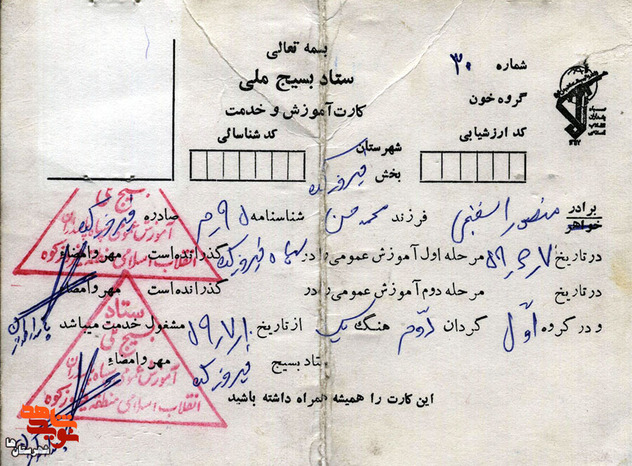 بسمه تعالی
شماره ۳۰
ستاد بسیج ملی
گروه خون
کارت آموزش و خدمت
کد ارزشیابی
کد شناسائی
شهرستان
بخش فیروزکوه
برادر
خواهر
منصور فرزند محمد حسن شناسنامه ۹۵ صادره فیروزکوه
در تاریخ ۵۹،۶،۷ مرحله اول آموزش عمومی را در سپاه فیروزکوه گذرانده است مهر و امضاء
در تاریخ مرحله دوم آموزش عمومی را در گذرانده است مهر و امضاء
و در گروه اول گردان دوم هنگ یک از تاریخ ۵۹،۷،۱۰ مشغول خدمت میباشد
ستاد بسیج فیروزکوه مهر و امضاء
این کارت را همیشه همراه داشته باشید
بسیج ملی
انقلاب اسلامی منطقه فیروزکوه
ستاد
بسیج ملی
انقلاب اسلامی منطقه فیروزکوه